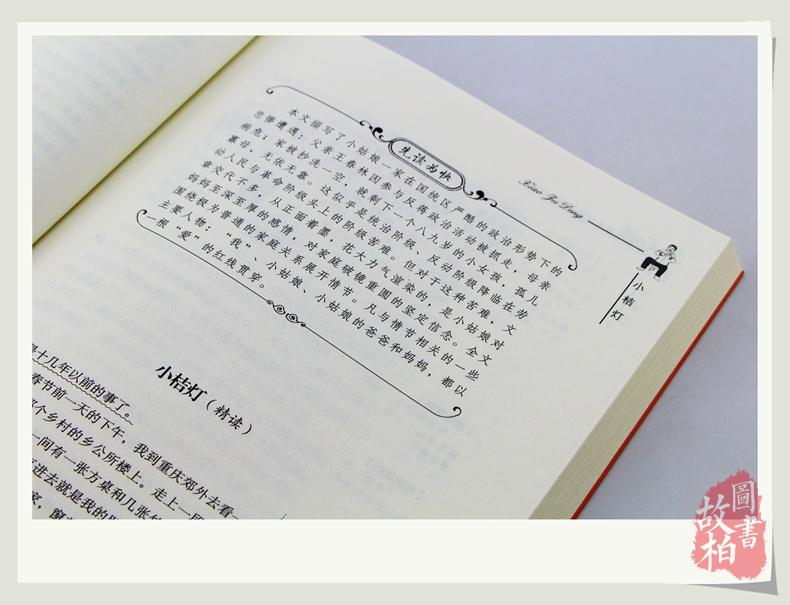 先读为快
本文描写了小姑娘一家在国统区严酷的政治形势下的
悲惨遭遇：父亲王春林因参与反蒋政治活动被抓走，母亲
病危；家被抄洗一空，就剩下一个八九岁的小女孩，孤儿
寡母，无依无靠。这似乎是统治阶级、反动阶级降临在劳
动人民与革命阶级头上的阶级苦难。但对于这种苦难，文
章交代不多，从正面着墨，花大力气渲染的，是小姑娘对
妈妈至深至厚的感情，对家庭破镜重圆的坚定信念。全文
围绕极为普通的家庭关系展开情节。凡与情节相关的一些
主要人物：“我”、小姑娘、小姑娘的爸爸和妈妈，都以
一根“爱”的红线贯穿。
Xiao Ju Deng
小桔灯
小桔灯（精读）
是十几年以前的事了。
春节前一天的下午，我到重庆郊外去看
个乡村的乡公所楼上。走上一段
一间有一张方桌和几张
进去就是我的
窗
故柏
圖書